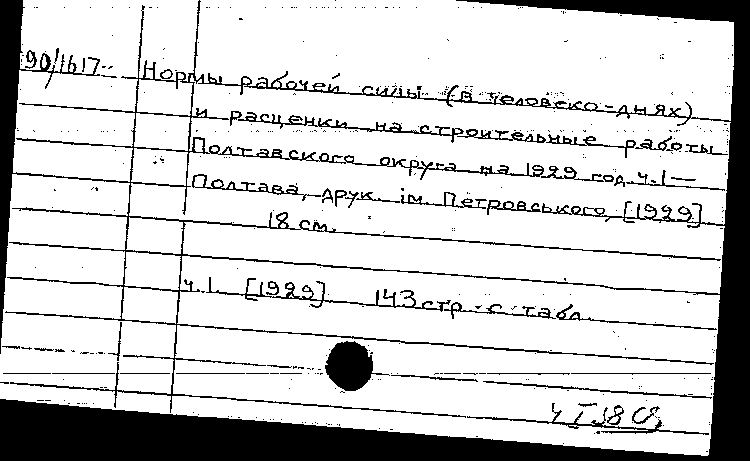 90/1617 Нормы рабочей силы (в человеко-днях)
и расценки на строительные работы
Полтавского округа на 1929 год. ч.1—
Полтава, друк. ім. Петровського, [1929]
18 см.
ч.1. [1929] 143 стр. с табл.